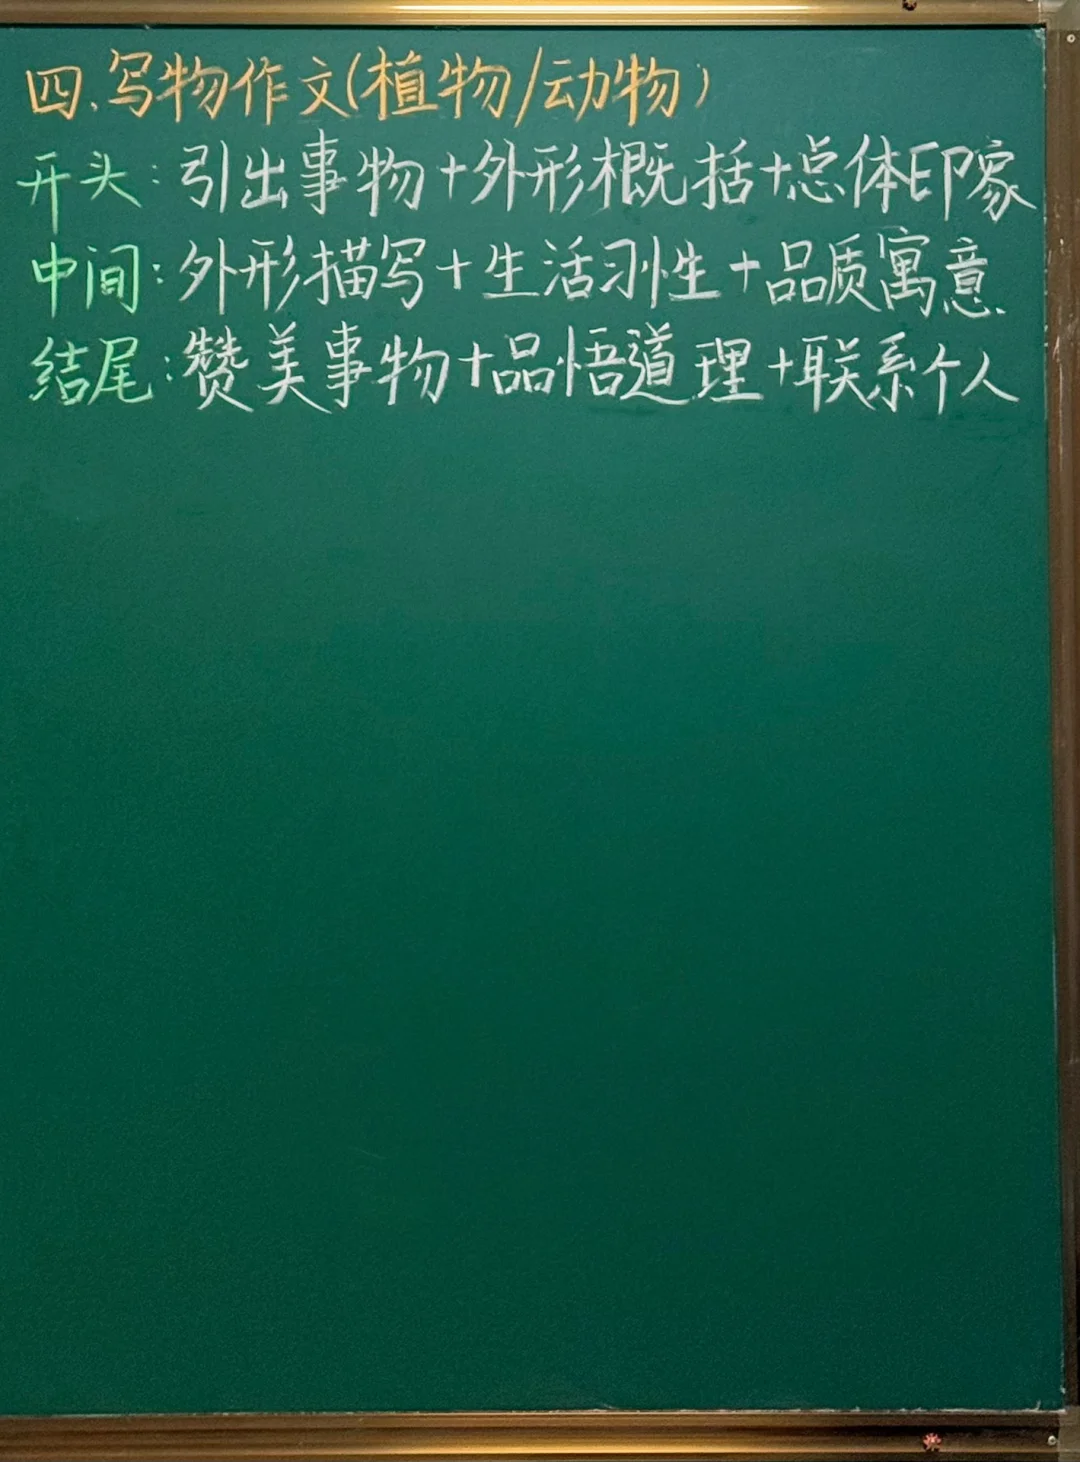 四.写物作文(植物/动物)
开头:引出事物+外形概括+总体印象
中间:外形描写+生活习性+品质寓意.
结尾:赞美事物+品悟道理+联系个人